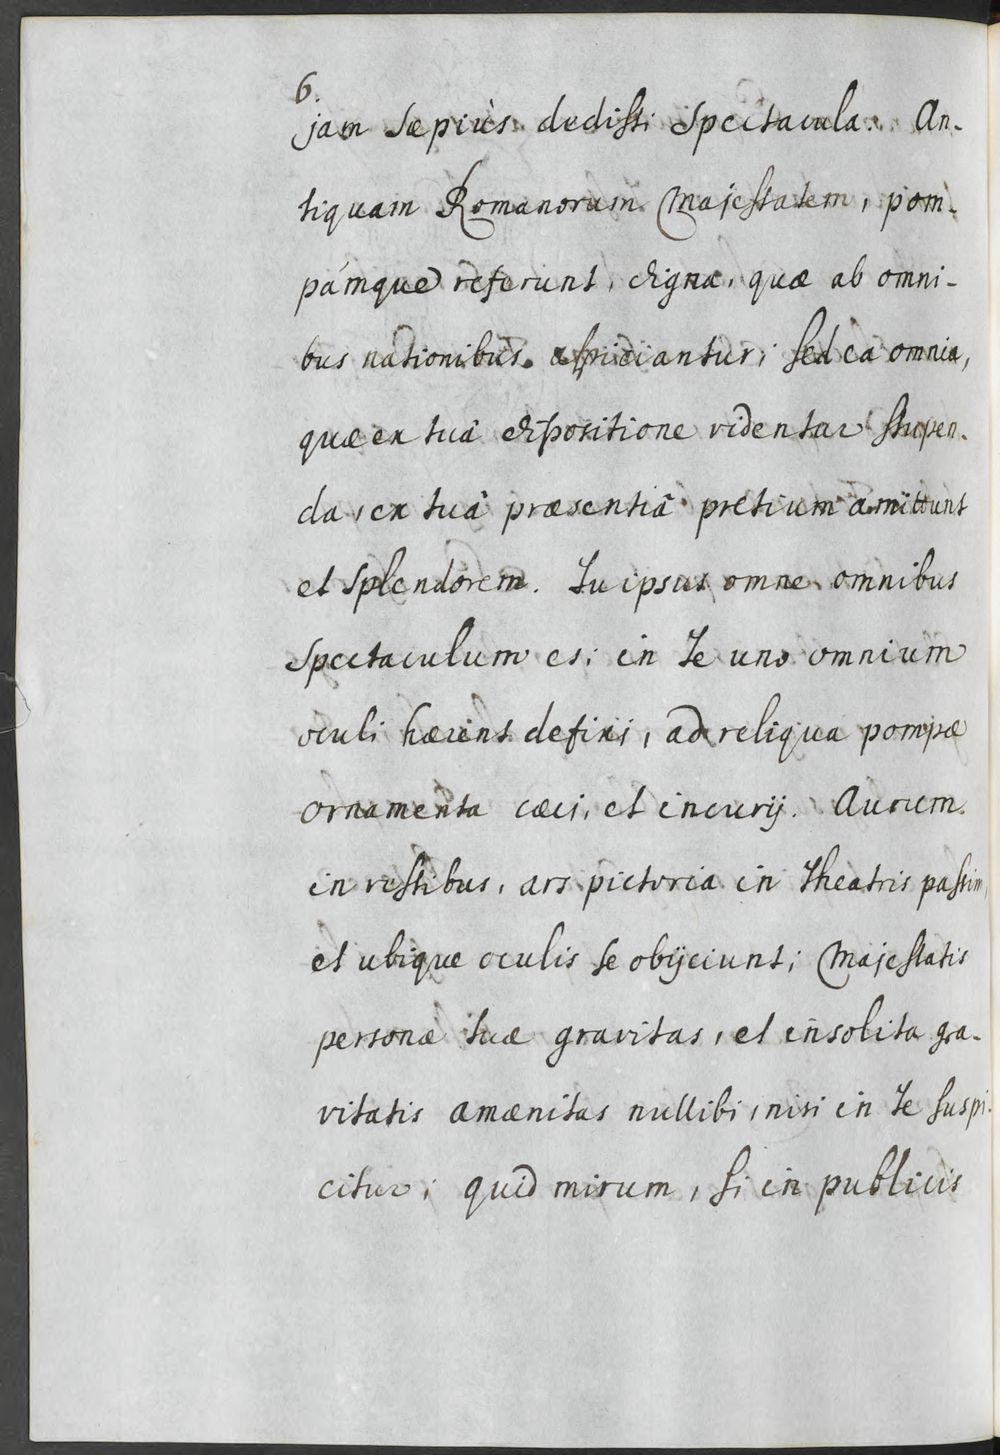 6.
jam sæpiùs dedisti Spectacula. An-
tiquam Romanorum Majestatem, pom-
pámque referunt, dignæ, quæ ab omni-
bus nationibus aspiciantur; sed ea omnia,
quæ ex tuâ dispositione videntur stupen-
da, ex tuâ præsentiâ pretium amittunt
et Splendorem. Tu ipsus omne omnibus
Spectaculum es; in Te uno omnium
oculi hærent defixi, ad reliqua pompæ
ornamenta cæci, et incurij. Aurum
in vestibus, ars pictoria in Theatris passim,
et ubique oculis se obijciunt; Majestatis
personæ tuæ gravitas, et insolita gra-
vitatis amænitas nullibi, nisi in Te suspi-
citur; quid mirum, si in publicis